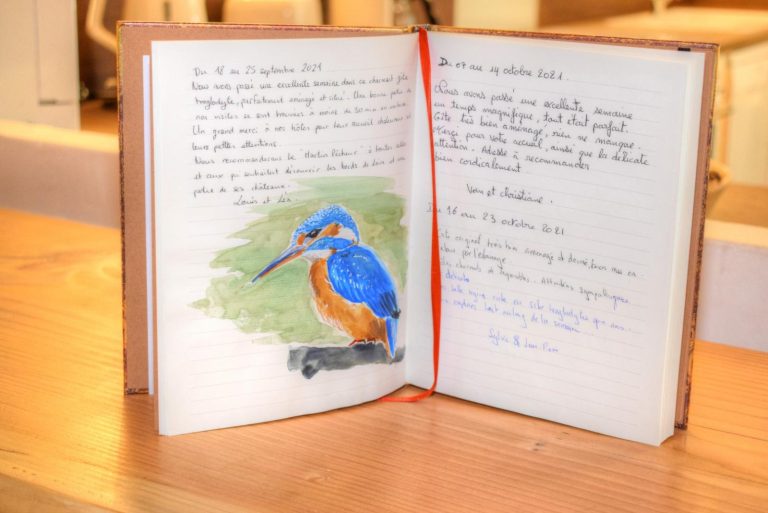 Du 18 au 25 septembre 2021
Nous avons passé une excellente semaine dans ce charmant gîte
troglodyte, parfaitement aménagé et situé. Une bonne partie de
nos visites se sont trouvées à moins de 30 min en voiture.
Un grand merci à nos hôtes pour leur accueil chaleureux et
leurs petites attentions.
Nous recommanderons le "Martin Pêcheur" à toutes celles
et ceux qui souhaitent découvrir les bords de Loire et une
partie de ses châteaux.
Louis et Léa.
Du 07 au 14 octobre 2021.
Nous avons passé une excellente semaine
un temps magnifique, tout était parfait.
Gîte très bien aménagé, rien ne manque.
Merci pour votre accueil, ainsi que la délicate
attention. Adresse à recommander
bien cordialement
Yvon et christiane.
Du 16 au 23 octobre 2021
Gîte original très bien aménagé et décoré, bien mis en
valeur par l'éclairage
Attentions sympathiques
troglodyte
de la semaine
Sylvie &